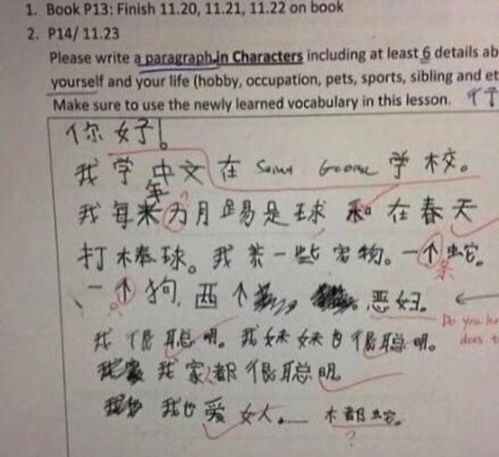 1. Book P13: Finish 11.20, 11.21, 11.22 on book
2. P14/ 11.23
Please write a paragraph in Characters including at least 6 details ab
yourself and your life (hobby, occupation, pets, sports, sibling and et
Make sure to use the newly learned vocabulary in this lesson.
你好!
我学中文在 学校。
年
我每 为月踢是球和在春天
打棒球。我养一些宠物。一个蛇。
条
一个狗,西个 。恶妇。
Do you ha
does t
我很聪明。我妹妹也很聪明。
我家都很聪明
我也爱女人。 木都蛇。
?